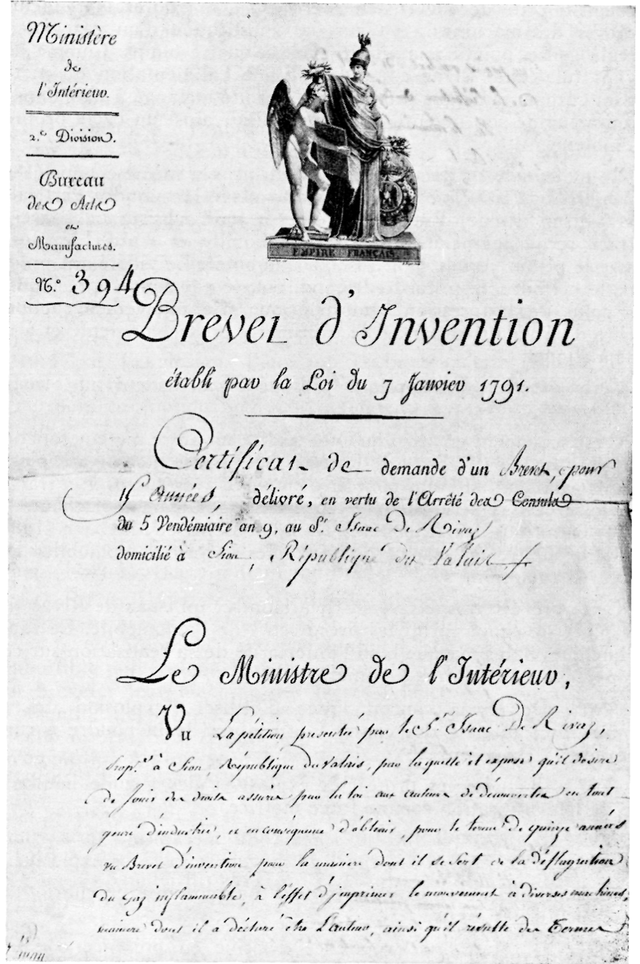 Ministère
de
l'Intérieur.
2.e Division.
Bureau
des Arts
et
Manufactures.
N.o 394
EMPIRE FRANÇAIS.
Brevet d'Invention
établi par la Loi du 7 Janvier 1791.
Certificat de demande d'un Brevet, pour
15 années, délivré, en vertu de l'Arrêté des Consuls
du 5 Vendémiaire an 9, au Sr. Isaac De Rivaz
domicilié à Sion, République du Valais
Le Ministre de l'Intérieur,
Vu La pétition présentée par le Sr. Isaac De Rivaz
à Sion République du Valais, par laquelle il expose qu'il désire
de jouir des droits assurés par la loi aux auteurs de découvertes en tout
genre d'industrie, et en conséquence d'obtenir, pour le terme de quinze années
un Brevet d'invention pour la manière dont il se sert de la déflagration
du gaz inflammable, à l'effet d'imprimer le mouvement à diverses machines,
manière dont il a déclaré être l'auteur, ainsi qu'il résulte des termes